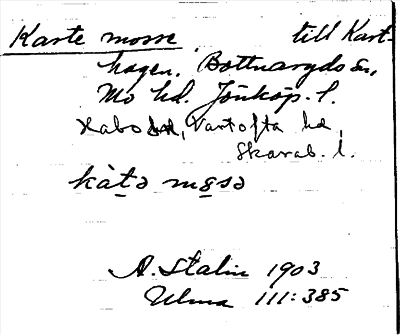 Karte mosse till Kart-
hagen, Bottnaryds sn,
Mo hd. Jönköp. l.
Habo sn, Vartofta hd,
Skarab. l.
kàtə mosə
A. Stalin 1903
Ulma 111:385